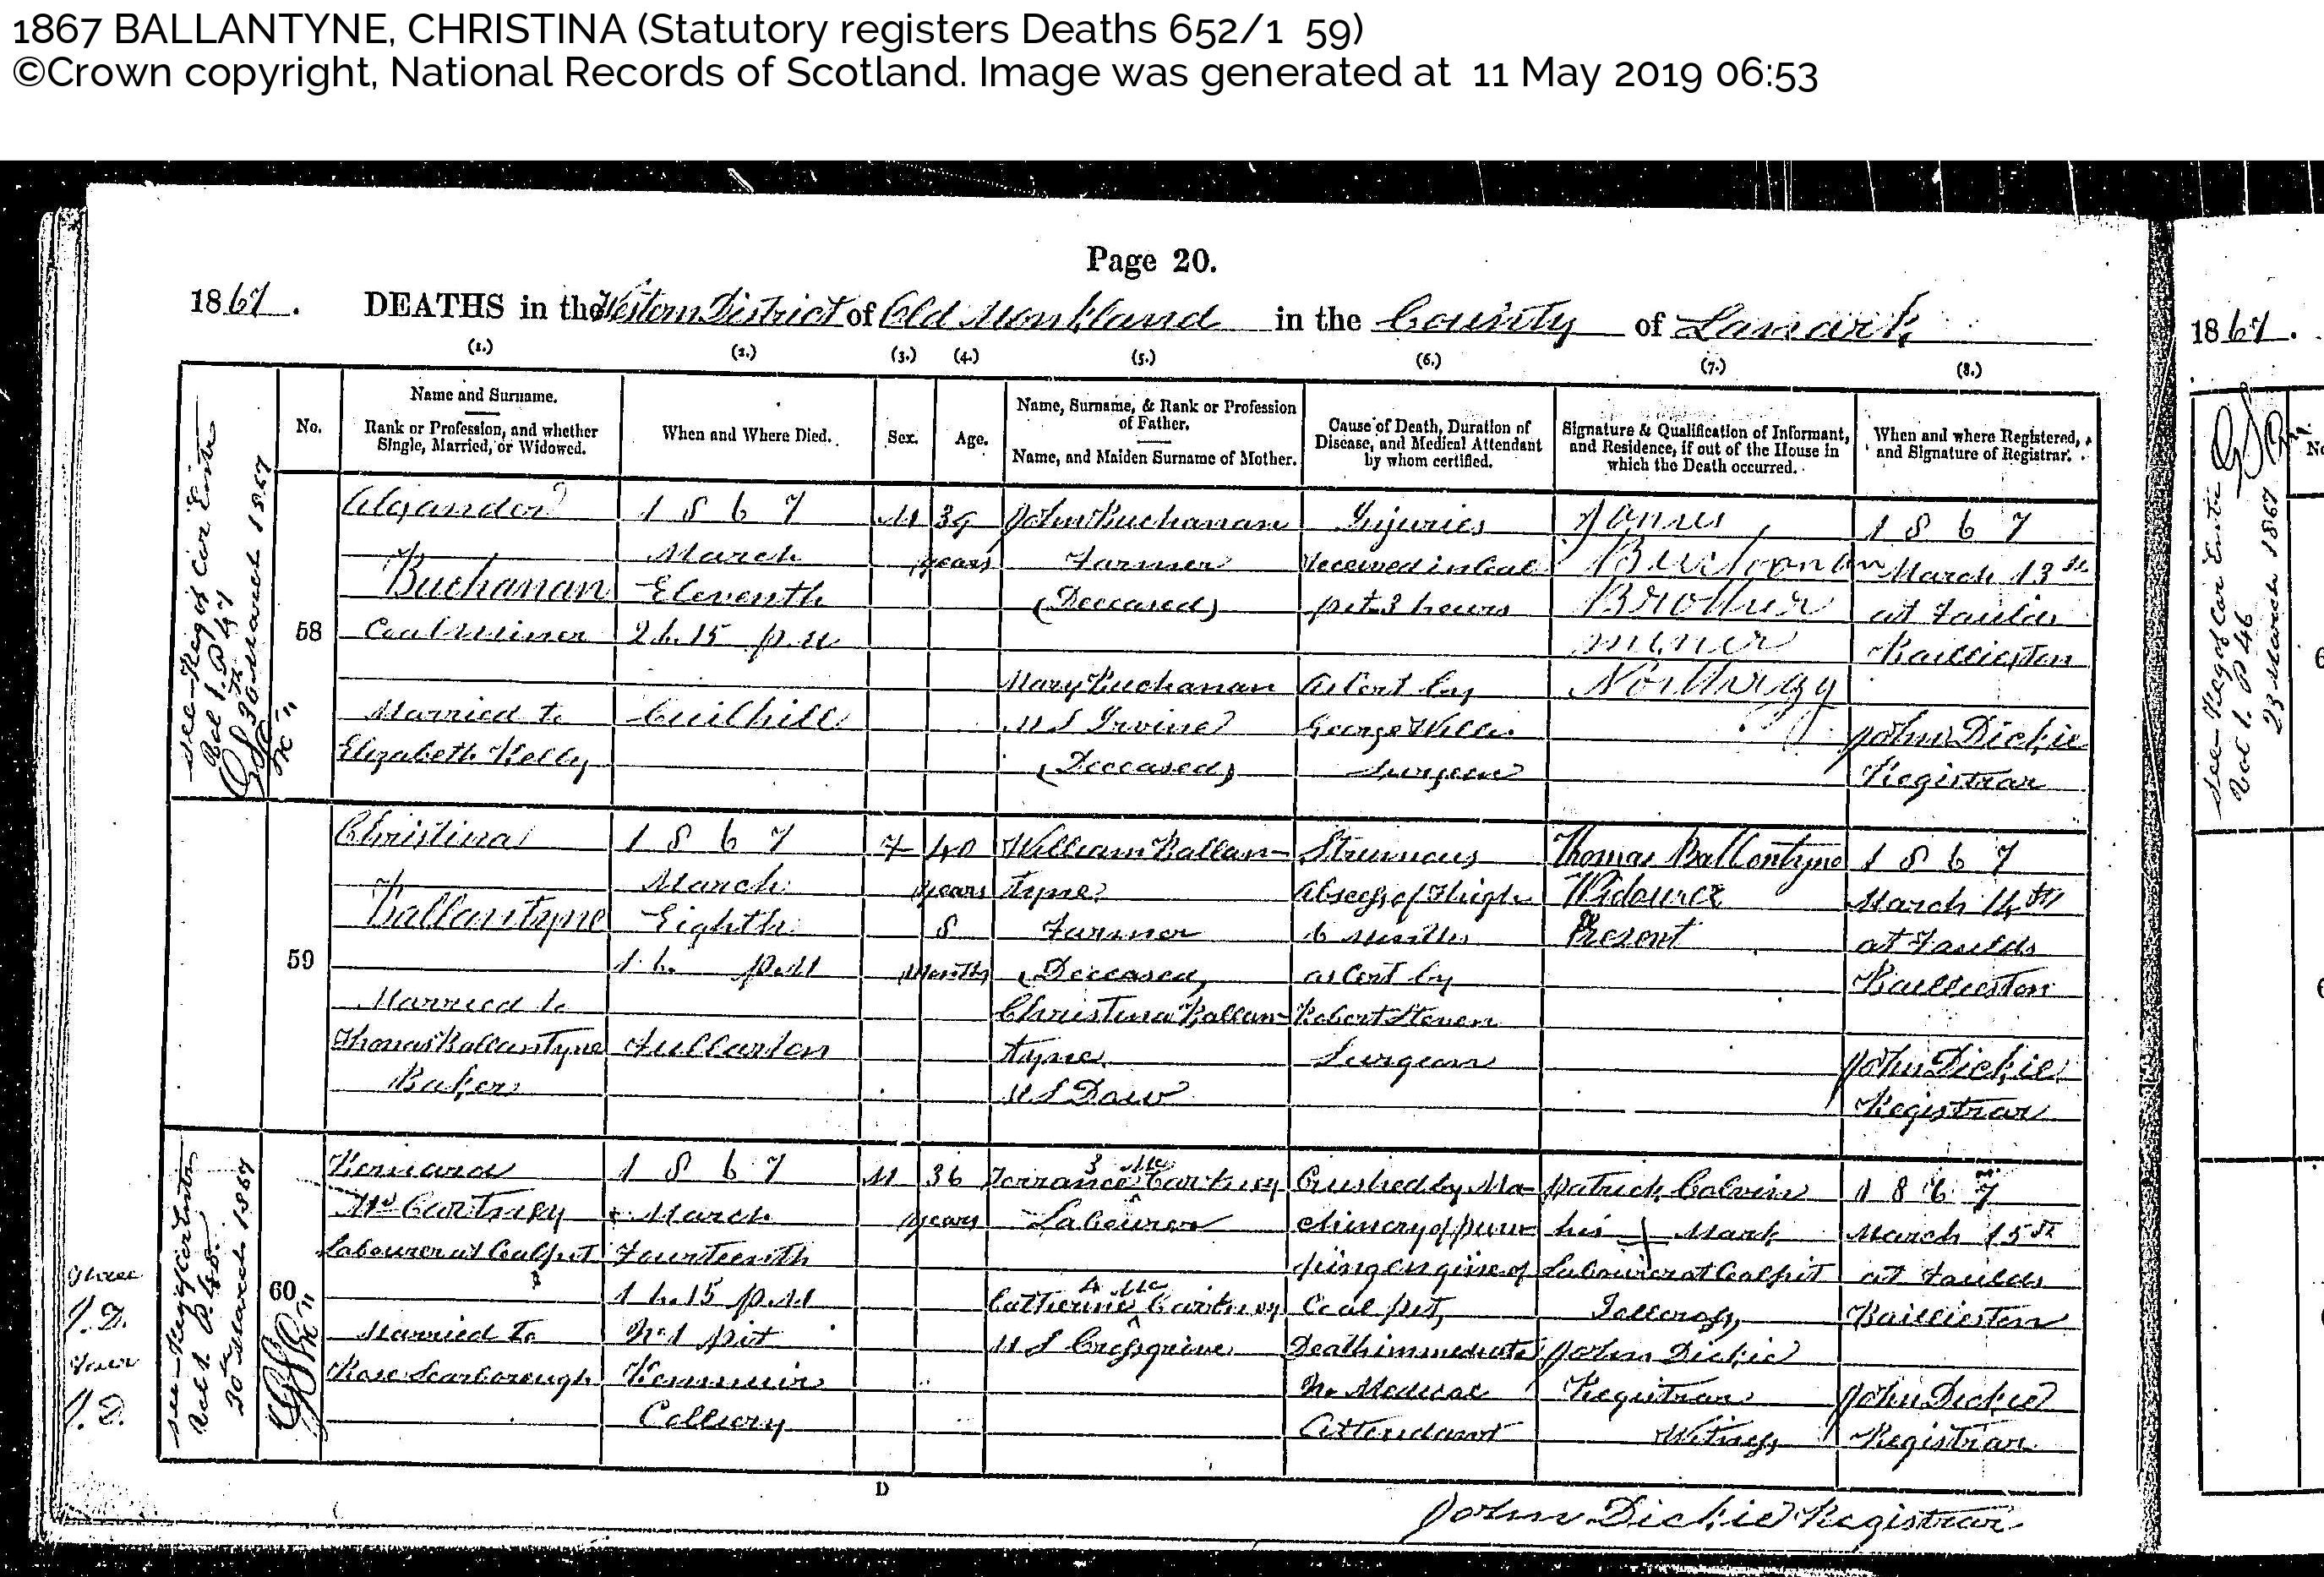 1867 BALLANTYNE, CHRISTINA (Statutory registers Deaths 652/1 59)
©Crown copyright, National Records of Scotland. Image was generated at 11 May 2019 06:53
Page 20.
1867. DEATHS in the Western District of Old Monkland in the County of Lanark
(1.) (2.) (3.) (4.) (5.) (6.) (7.) (8.)
No.
Name and Surname.
Rank or Profession, and whether
Single, Married, or Widowed.
When and Where Died.
Sex.
Age.
Name, Surname, & Rank or Profession
of Father.
Name, and Maiden Surname of Mother.
Cause of Death, Duration of
Disease, and Medical Attendant
by whom certified.
Signature & Qualification of Informant,
and Residence, if out of the House in
which the Death occurred.
When and where Registered,
and Signature of Registrar.
see Reg of Cor Entr
Vol 1. P 47
March 1867
58
Alexander
Buchanan
Coal Miner
Married to
Elizabeth Kelly
1867
March
Eleventh
2 h. 15 p.m
Cuilhill
M
39
years
John Buchanan
Farmer
(Deceased)
Mary Buchanan
M S Irvine
(Deceased)
Injuries
received in Coal
pit 3 hours
As Cert by
George Willis
Surgeon
James
Buchanan
Brother
miner
1867
March 13th
at Faulds
Baillieston
John Dickie
Registrar
59
Christina
Ballantyne
Married to
Thomas Ballantyne
Baker
1867
March
Eighth
1 h. p.M
Fullarton
F
40
years
8
Months
William Ballan-
tyne
Farmer
(Deceased)
Christina Ballan-
tyne
M S Daw
Strumous
Abscess of Thigh
6 Months
as Cert by
Robert Steven
Surgeon
Thomas Ballantyne
Widower
Present
1867
March 14th
at Faulds
Baillieston
John Dickie
Registrar
see Reg of Cor Entr
Vol 1. P. 48.
30th March 1867
three
J.D.
four
J.D.
60
Bernard
McCartney
Labourer at Coalpit
Married to
Rose Scarborough
1867
March
Fourteenth
1 h. 15 p.M
No 1 pit
Kenmuir
Colliery
M
36
years
3 Mc
Torrance Cartney
Labourer
4 Mc
Catherine Cartney
M S Cressgrine
Crushed by Ma-
chinery of pum-
ping engine of
Coal pit,
Death immediate
No Medical
Attendant
Patrick Calvin
his Mark
Labourer at Coalpit
Tollcross
John Dickie
Registrar
Witness
1867
March 15th
at Faulds
Baillieston
John Dickie
Registrar
D
John Dickie Registrar
1867.
see Reg of Cor Entr
Vol 1. P 46
23 March 1867